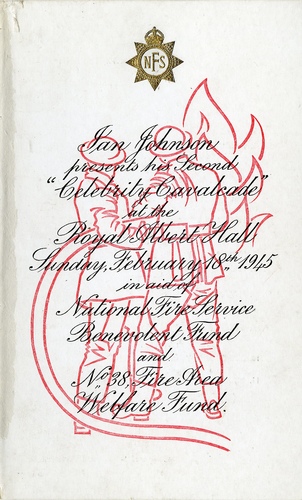 NFS
Ian Johnson
presents his Second
"Celebrity Cavalcade"
at the
Royal Albert Hall
Sunday, February 18th 1945
in aid of
National Fire Service
Benevolent Fund
and
No 38, Fire Area
Welfare Fund.